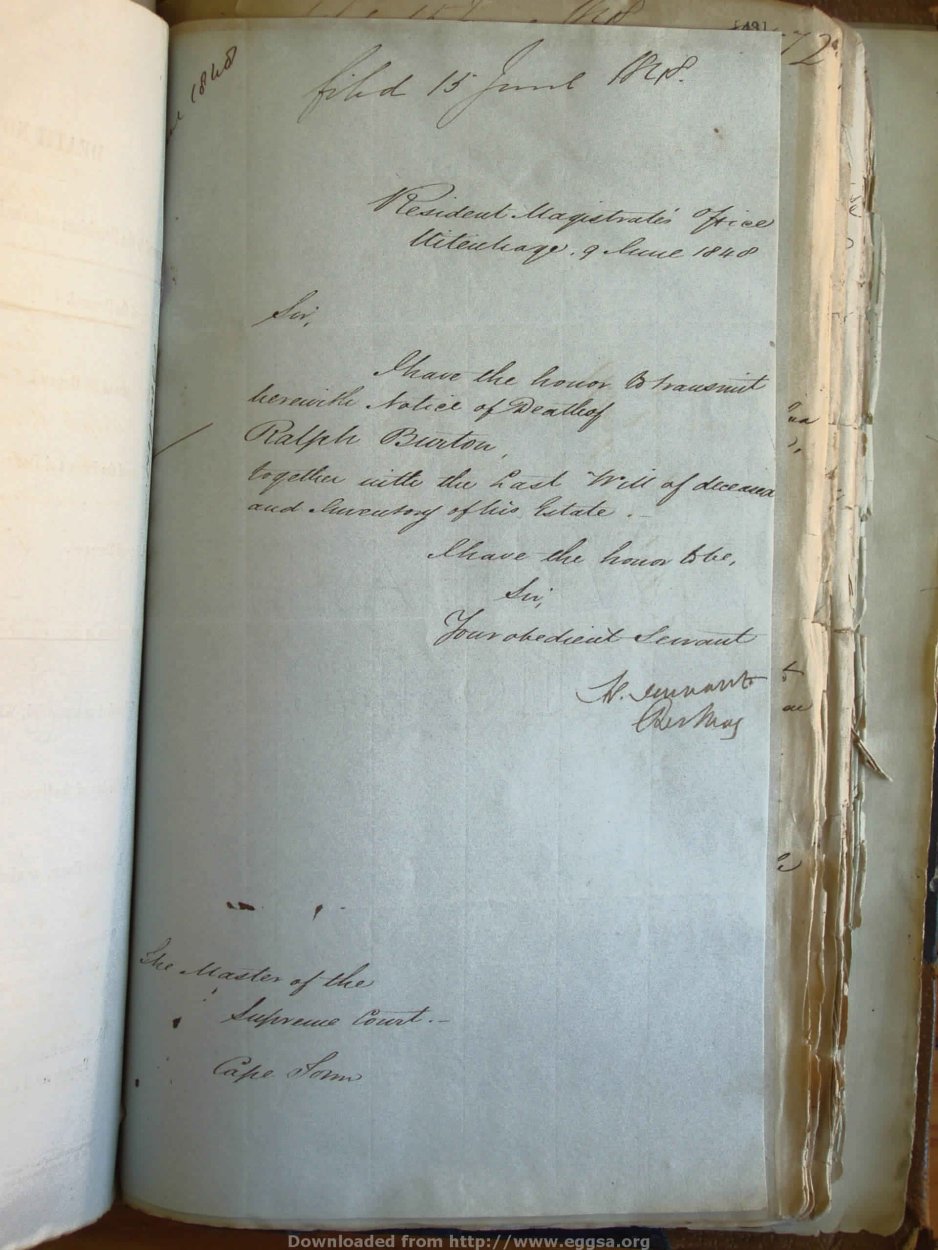 [49]
72
1848
filed 15 June 1848.
Resident Magistrate's Office
Uitenhage. 9 June 1848
Sir,
I have the honor to transmit
herewith Notice of Death of
Ralph Burton,
together with the Last Will of deceased
and Inventory of his Estate.-
I have the honor to be,
Sir,
Your obedient Servant
Res Mag
The Master of the
Supreme Court.-
Cape Town
Downloaded from http://www.eggsa.org